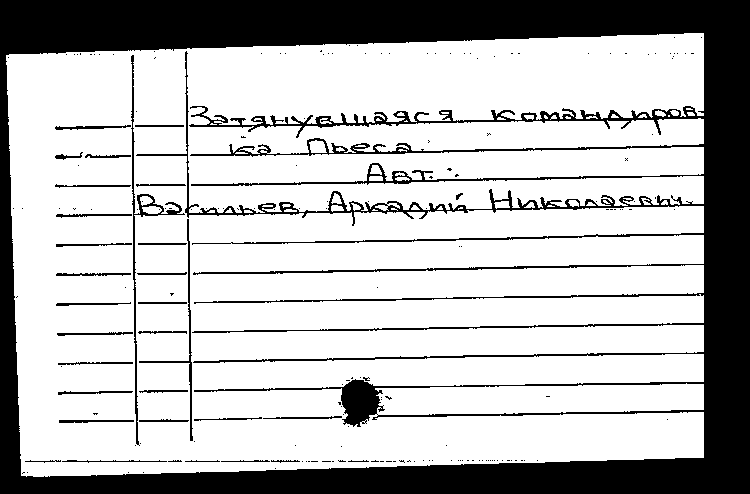 Затянувшаяся командиров-
ка Пьеса.
Авт.:
Васильев, Аркадий Николаевич.